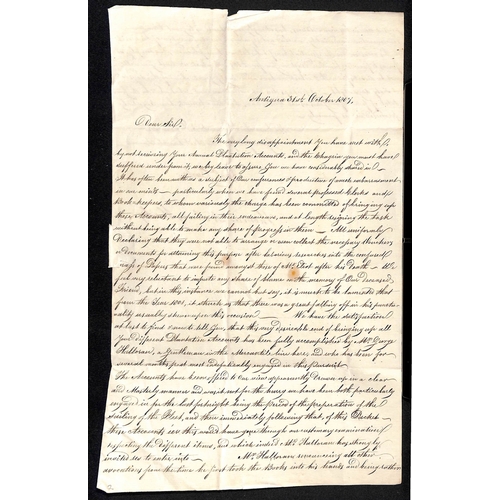 Antigua 31st October 1807.
Dear Sir,
The very long disappointment you have met with
by not receiving your Annual Plantation Accounts, and the Chagrin you must have
suffered under from it, we beg leave to assure you we have very sensibly shared in
It has often been with us a subject of our conferences & productive of much embarrassment
in our minds — particularly when we have found several professed Clerks and
Book keepers, to whom variously the charge has been committed of bringing up
these Accounts, all failing in their endeavours, and at length resigning the task
without being able to make any share of progress in them — All uniformly
Declaring that they were not able to arrange or even collect the necessary Vouchers
& Documents for attaining this purpose after laborious researches into the confused
mass of Papers that were found amongst those of Mr. after his Death — We
feel any reluctance to impute any share of blame to the memory of Our deceased
Friend, but in this instance we cannot but say, it is much to be lamented that
from the Year 1801, it should so that there was a great falling off in his punctu-
ality usually shewn upon this occasion — We have the satisfaction
at last to find & now to tell you, that this very desireable end of bringing up all
your different Plantation Accounts has been fully accomplished by Mr. George
Halloran, a Gentleman in the Mercantile line here, and who has been for
several months past most indefatigably engaged in this Pursuit
The Accounts have been offered to Our view apparently drawn up in a clear
and Masterly manner and was it not for the hurry we have been both particularly
engaged in for the last fortnight being the period of the preparation of the
sailing of the Fleet, and then immediately following that, of this Packet
these Accounts we should have gone through our customary examinations
respecting the different items, and which indeed Mr. Halloran has strongly
invited us to enter into — Mr. Halloran renouncing all other
avocations from the time he first took the Books into his hands and being rather